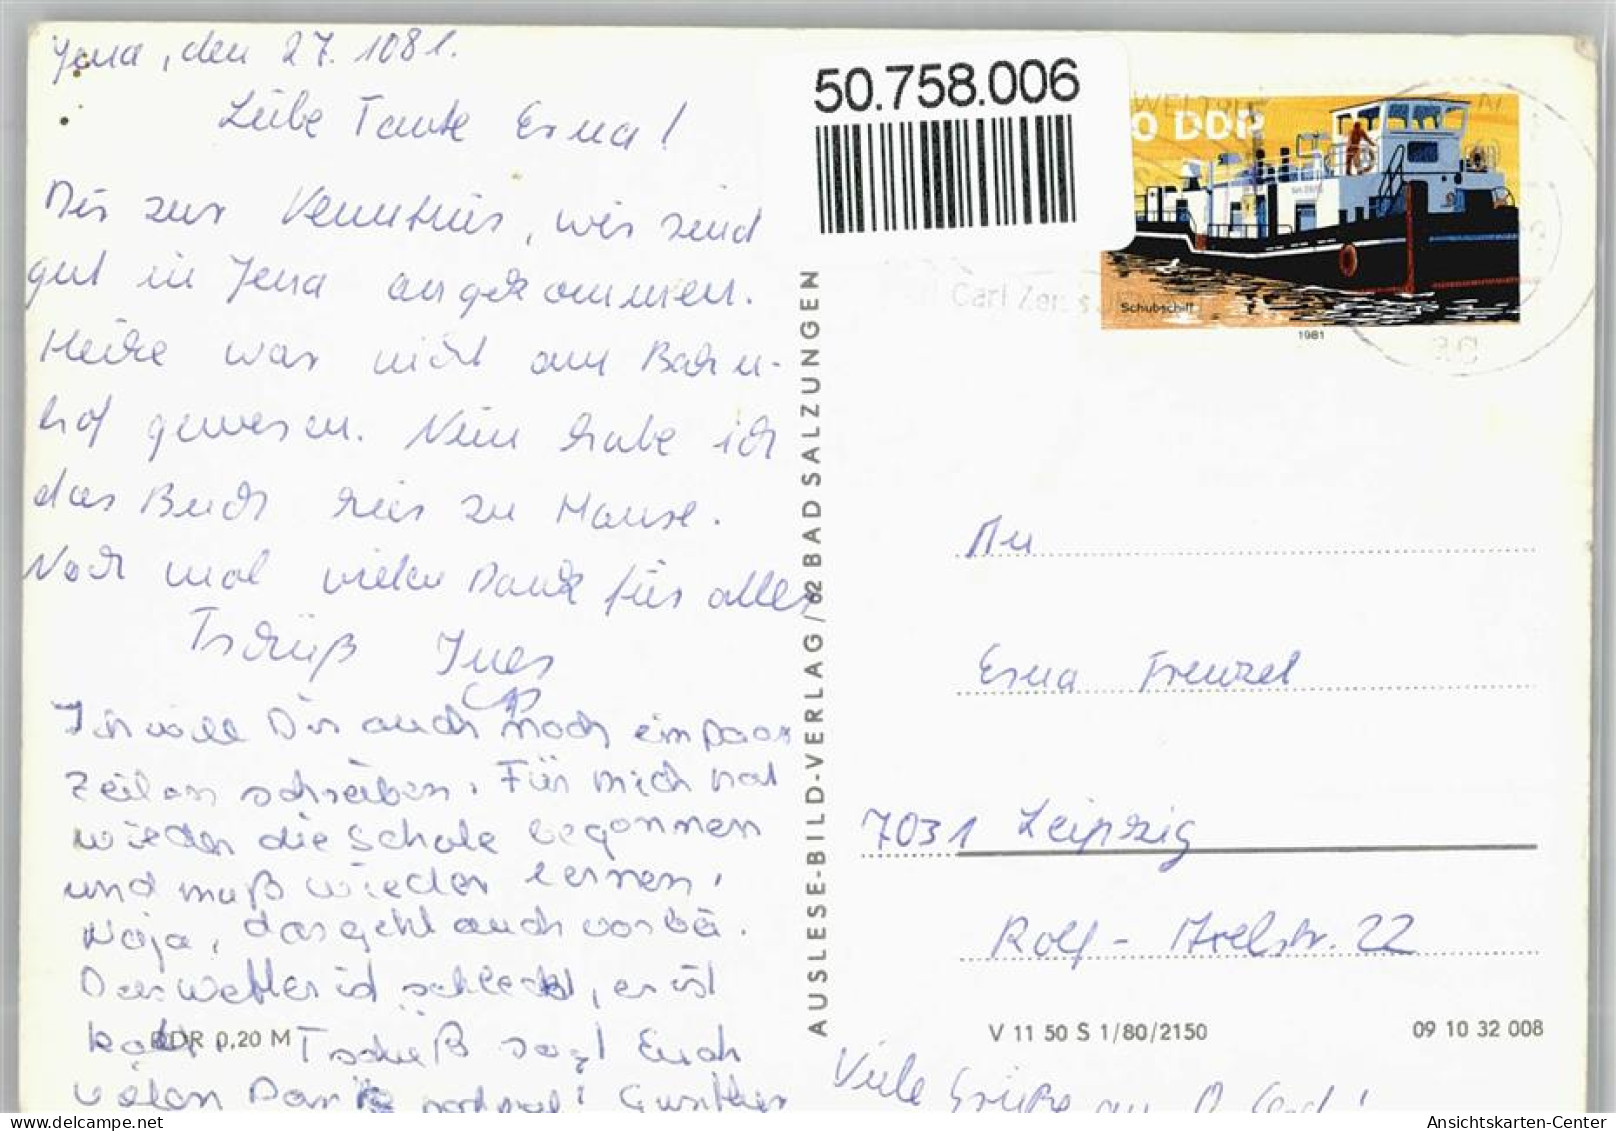 Jena, den 27. 1081.
Liebe Tante Erna!
Dir zur Kenntnis, wir sind
gut in Jena angekommen.
Heike war nicht am Bahn-
hof gewesen. Nun habe ich
das Buch hier zu Hause.
Noch mal vielen Dank für alles
Tschüß Ines
Ich will Dir auch noch ein paar
Zeilen schreiben. Für mich hat
wieder die Schule begonnen
und muß wieder lernen.
Naja, das geht auch vorbei.
Das Wetter ist schlecht, er ist
kalt. Tschüß sagt Euch
vielen Dank nochmal! Gunther
DDR 0,20 M
AUSLESE-BILD-VERLAG / 62 BAD SALZUNGEN
50.758.006
0 DDR
Schubschiff
1981
Carl Zeiss
An
Erna Frenzel
7031 Leipzig
Rolf-Axelstr. 22
V 11 50 S 1/80/2150
09 10 32 008
Viele Grüße an
Ansichtskarten-Center